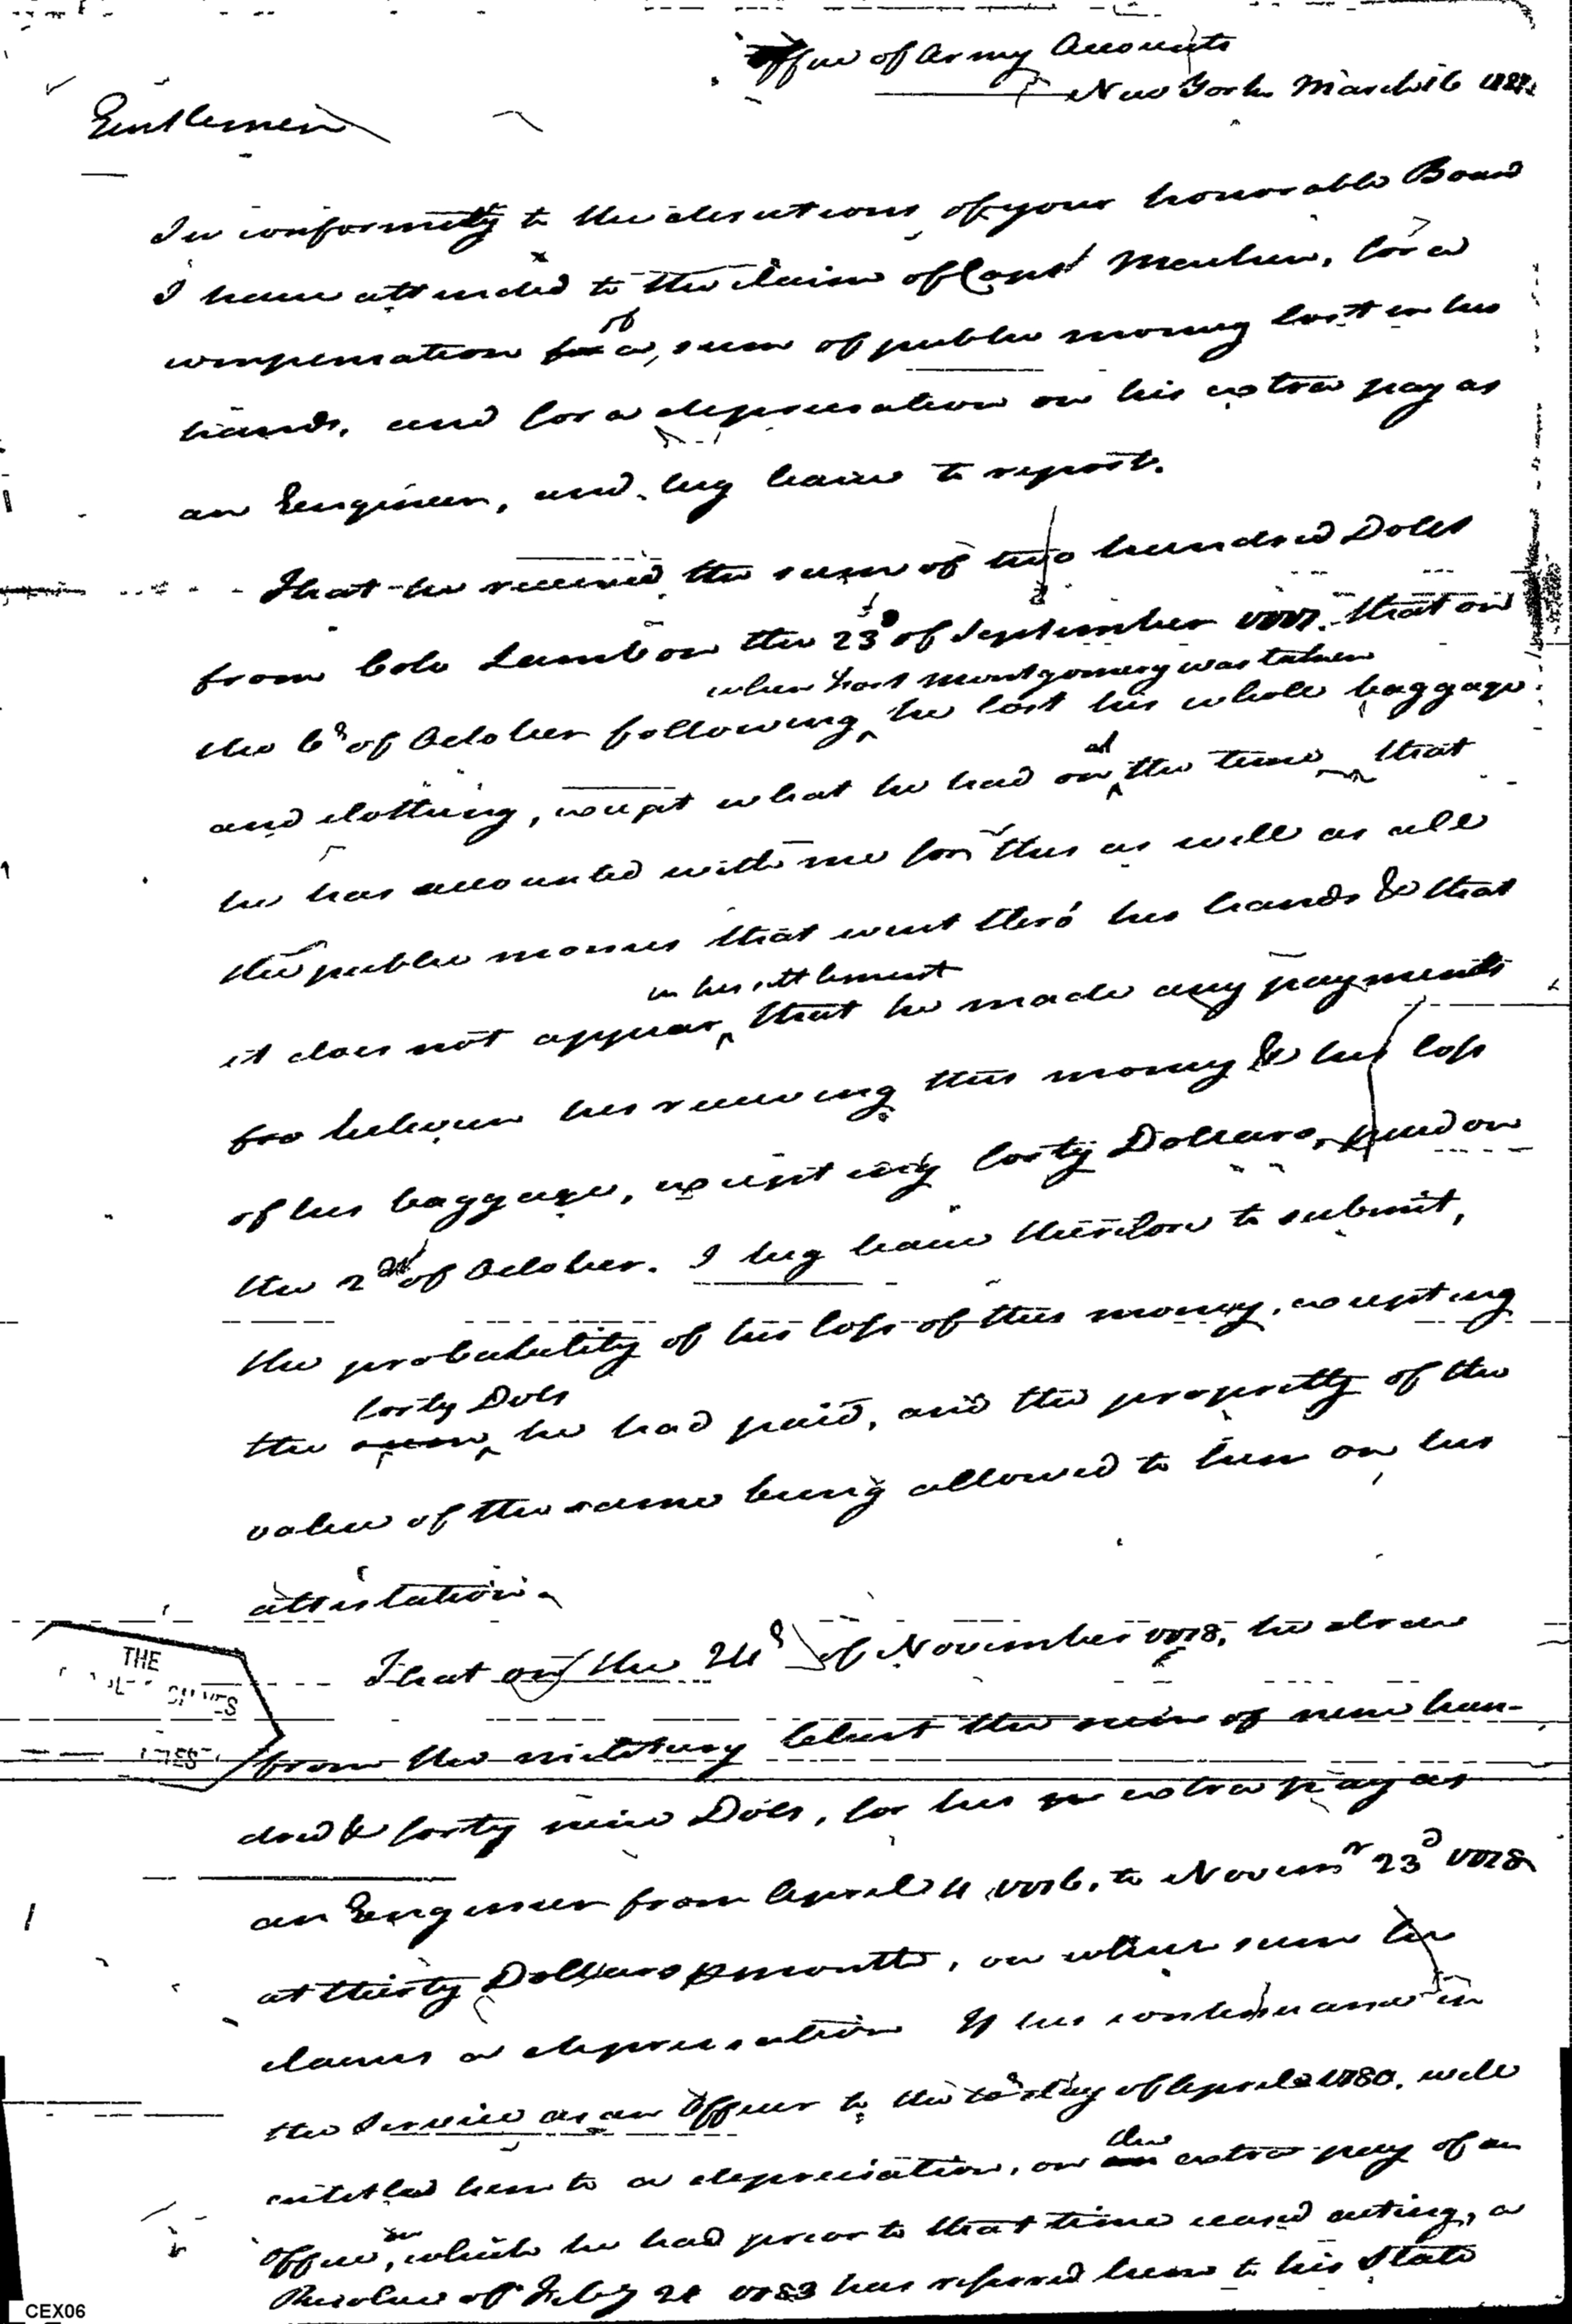 Office of Army Accounts
New York March 16
Gentlemen
In conformity to the directions of your honorable Board
I have attended to the claim of Capt Machin, for a
compensation for of a sum of public money lost in his
hands, and for a depreciation on his extra pay as
an Engineer, and beg leave to report.
That he received the sum of two hundred Dolls
from Colo Lamb on the 23d of September 1777. that on
when Fort Montgomery was taken
the 6h of October following, he lost his whole baggage
and clothing, except what he had on at the time, that
he has accounted with me for this as well as all
the public monies that went thro' his hands & that
in his settlement
it does not appear, that he made any payments
between his receiving this money & his loss
of his baggage, excepting forty Dollars, paid on
the 2d of October. I beg leave therefore to submit,
the probability of his loss of this money, excepting
forty Dols
the sum he had paid, and the propriety of the
value of the same being allowed to him on his
attestation.
That on the 24h of November 1778, he drew
from the military Chest the sum of nine hun-
dred & forty nine Dols, for his extra pay as
an Engineer from April 11 1776. to Novemr 23d 1778
at thirty Dollars p month, on which sum he
claims a depreciation If his continuance in
the Service as an Officer to the 10h day of April 1780. will
the
entitled him to a depreciation, on an extra pay of an
in
Office, which he had prior to that time ceased acting, a
Resolve of Feby 24 1783 has referred him to his State
THE
CEX06